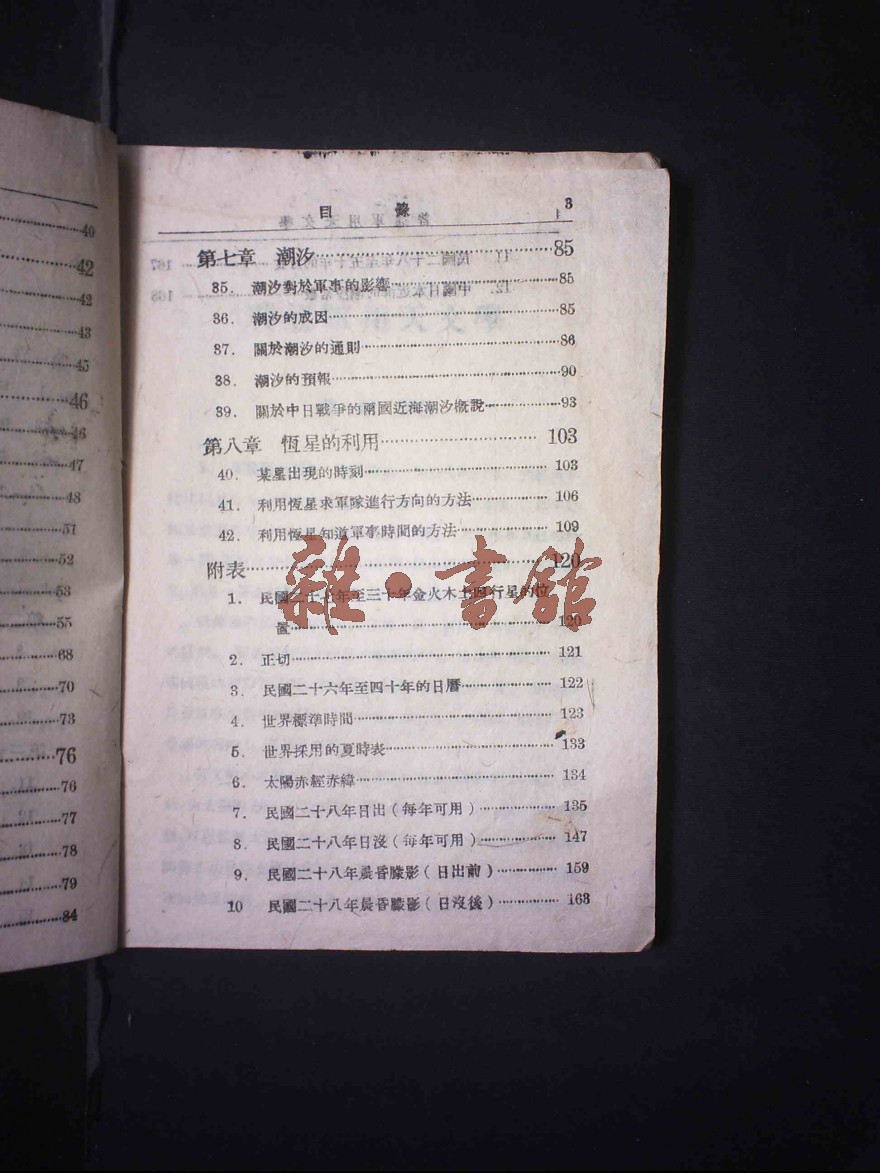 40
42
42
43
45
46
46
47
48
51
52
53
55
68
70
73
76
76
77
78
79
84
目錄 3
第七章 潮汐……85
35. 潮汐對於軍事的影響……85
36. 潮汐的成因……85
37. 關於潮汐的通則……86
38. 潮汐的預報……90
39. 關於中日戰爭的兩國近海潮汐概說……93
第八章 恆星的利用……103
40. 某星出現的時刻……103
41. 利用恆星求軍隊進行方向的方法……106
42. 利用恆星知道軍事時間的方法……109
附表……120
1. 民國二十八年至三十年金火木土四行星的位
置……120
2. 正切……121
3. 民國二十六年至四十年的日曆……122
4. 世界標準時間……123
5. 世界採用的夏時表……133
6. 太陽赤經赤緯……134
7. 民國二十八年日出(每年可用)……135
8. 民國二十八年日沒(每年可用)……147
9. 民國二十八年晨昏朦影(日出前)……159
10 民國二十八年晨昏朦影(日沒後)……163
雜·書館